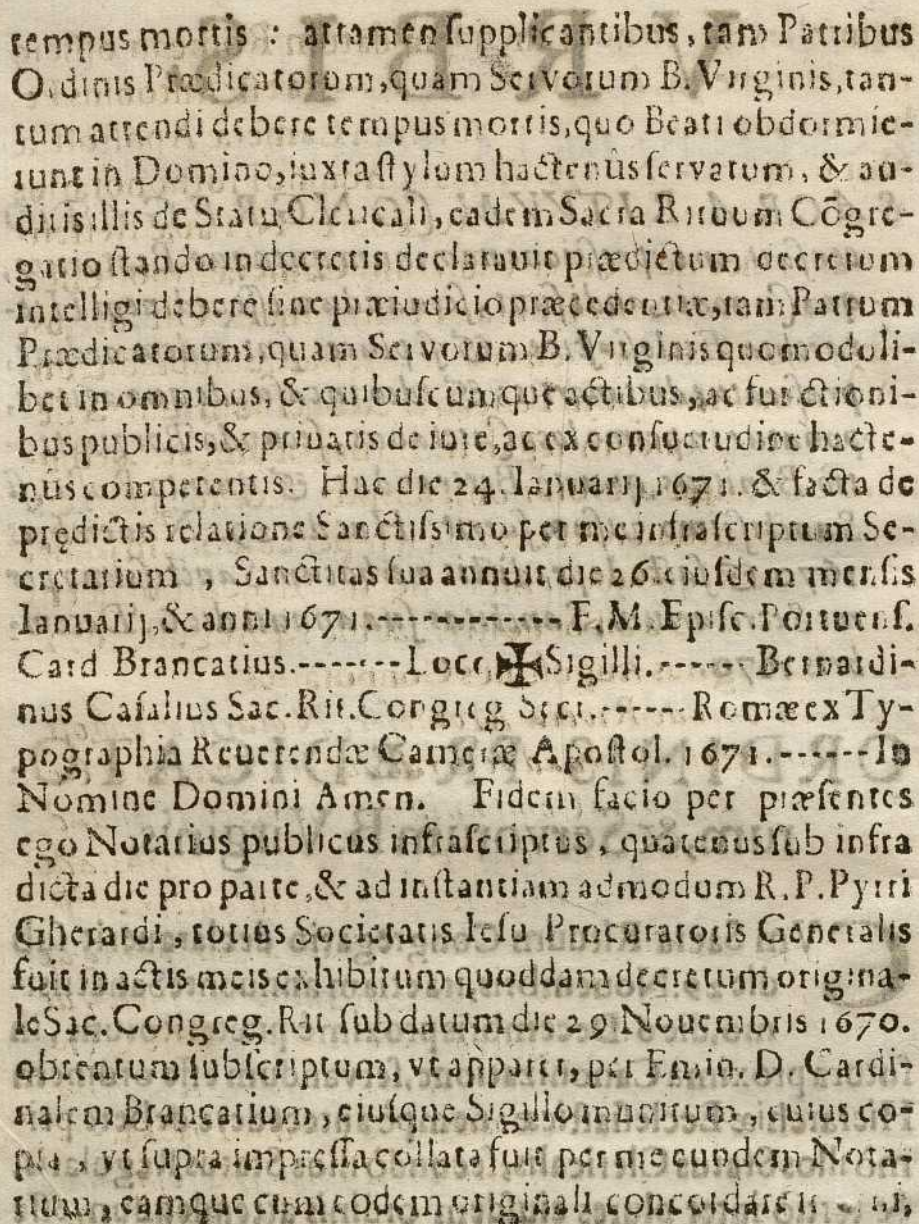 tempus mortis : attamen ſupplicantibus, tam Patribus
Ordinis Prædicatorum, quam Servorum B. Virginis, tan-
tum attendi debere tempus mortis, quo Beati obdormie-
runt in Domino, iuxta ſtylum hactenùs ſervatum, & au-
ditis illis de Statu Clericali, eadem Sacra Rituum Cõgre-
gatio ſtando in decretis declarauit prædictum decretum
intelligi debere ſine præiudicio præcedentiæ, tam Patrum
Prædicatorum, quam Servorum B. Virginis quomodoli-
bet in omnibus, & quibuſcumque actibus, ac functioni-
bus publicis, & priuatis de iure, ac ex conſuetudine hacte-
nùs competentis. Hac die 24. Ianuarij 1671. & facta de
prędictis relatione Sanctiſsimo per me infraſcriptum Se-
cretarium , Sanctitas ſua annuit die 26. eiuſdem menſis
Ianuarij, & anni 1671.------------F.M. Epiſc. Portuenſ.
Card Brancatius.-------Loco ✠ Sigilli.------Bernardi-
nus Caſalius Sac. Rit. Congreg Secr.------Romæ ex Ty-
pographia Reuerendæ Cameræ Apoſtol. 1671.------In
Nomine Domini Amen. Fidem facio per præſentes
ego Notarius publicus infraſcriptus , quatenus ſub infra
dicta die pro parte, & ad inſtantiam admodum R. P. Pyrri
Gherardi , totius Societatis Ieſu Procuratoris Generalis
fuit in actis meis exhibitum quoddam decretum origina-
le Sac. Congreg. Rit ſub datum die 29 Nouembris 1670.
obtentum ſubſcriptum, vt apparet, per Emin. D. Cardi-
nalem Brancatium , eiuſque Sigillo munitum , cuius co-
pia , vt ſupra impreſſa collata fuit per me eundem Nota-
rium, eamque cum eodem originali concordare